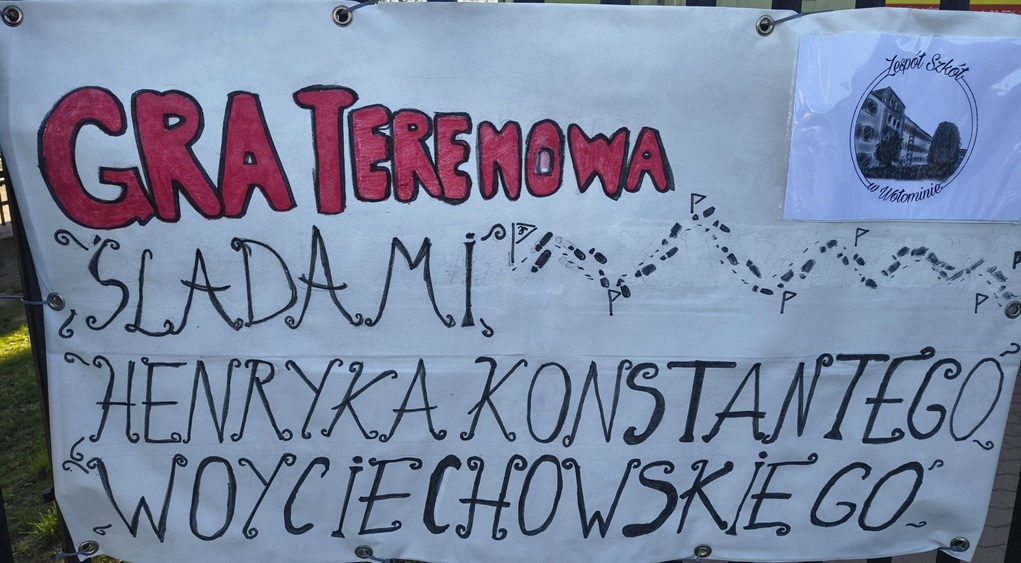 GRA TERENOWA
ŚLADAMI
HENRYKA KONSTANTEGO
WOYCIECHOWSKIEGO
Zespół Szkół
w Wołominie